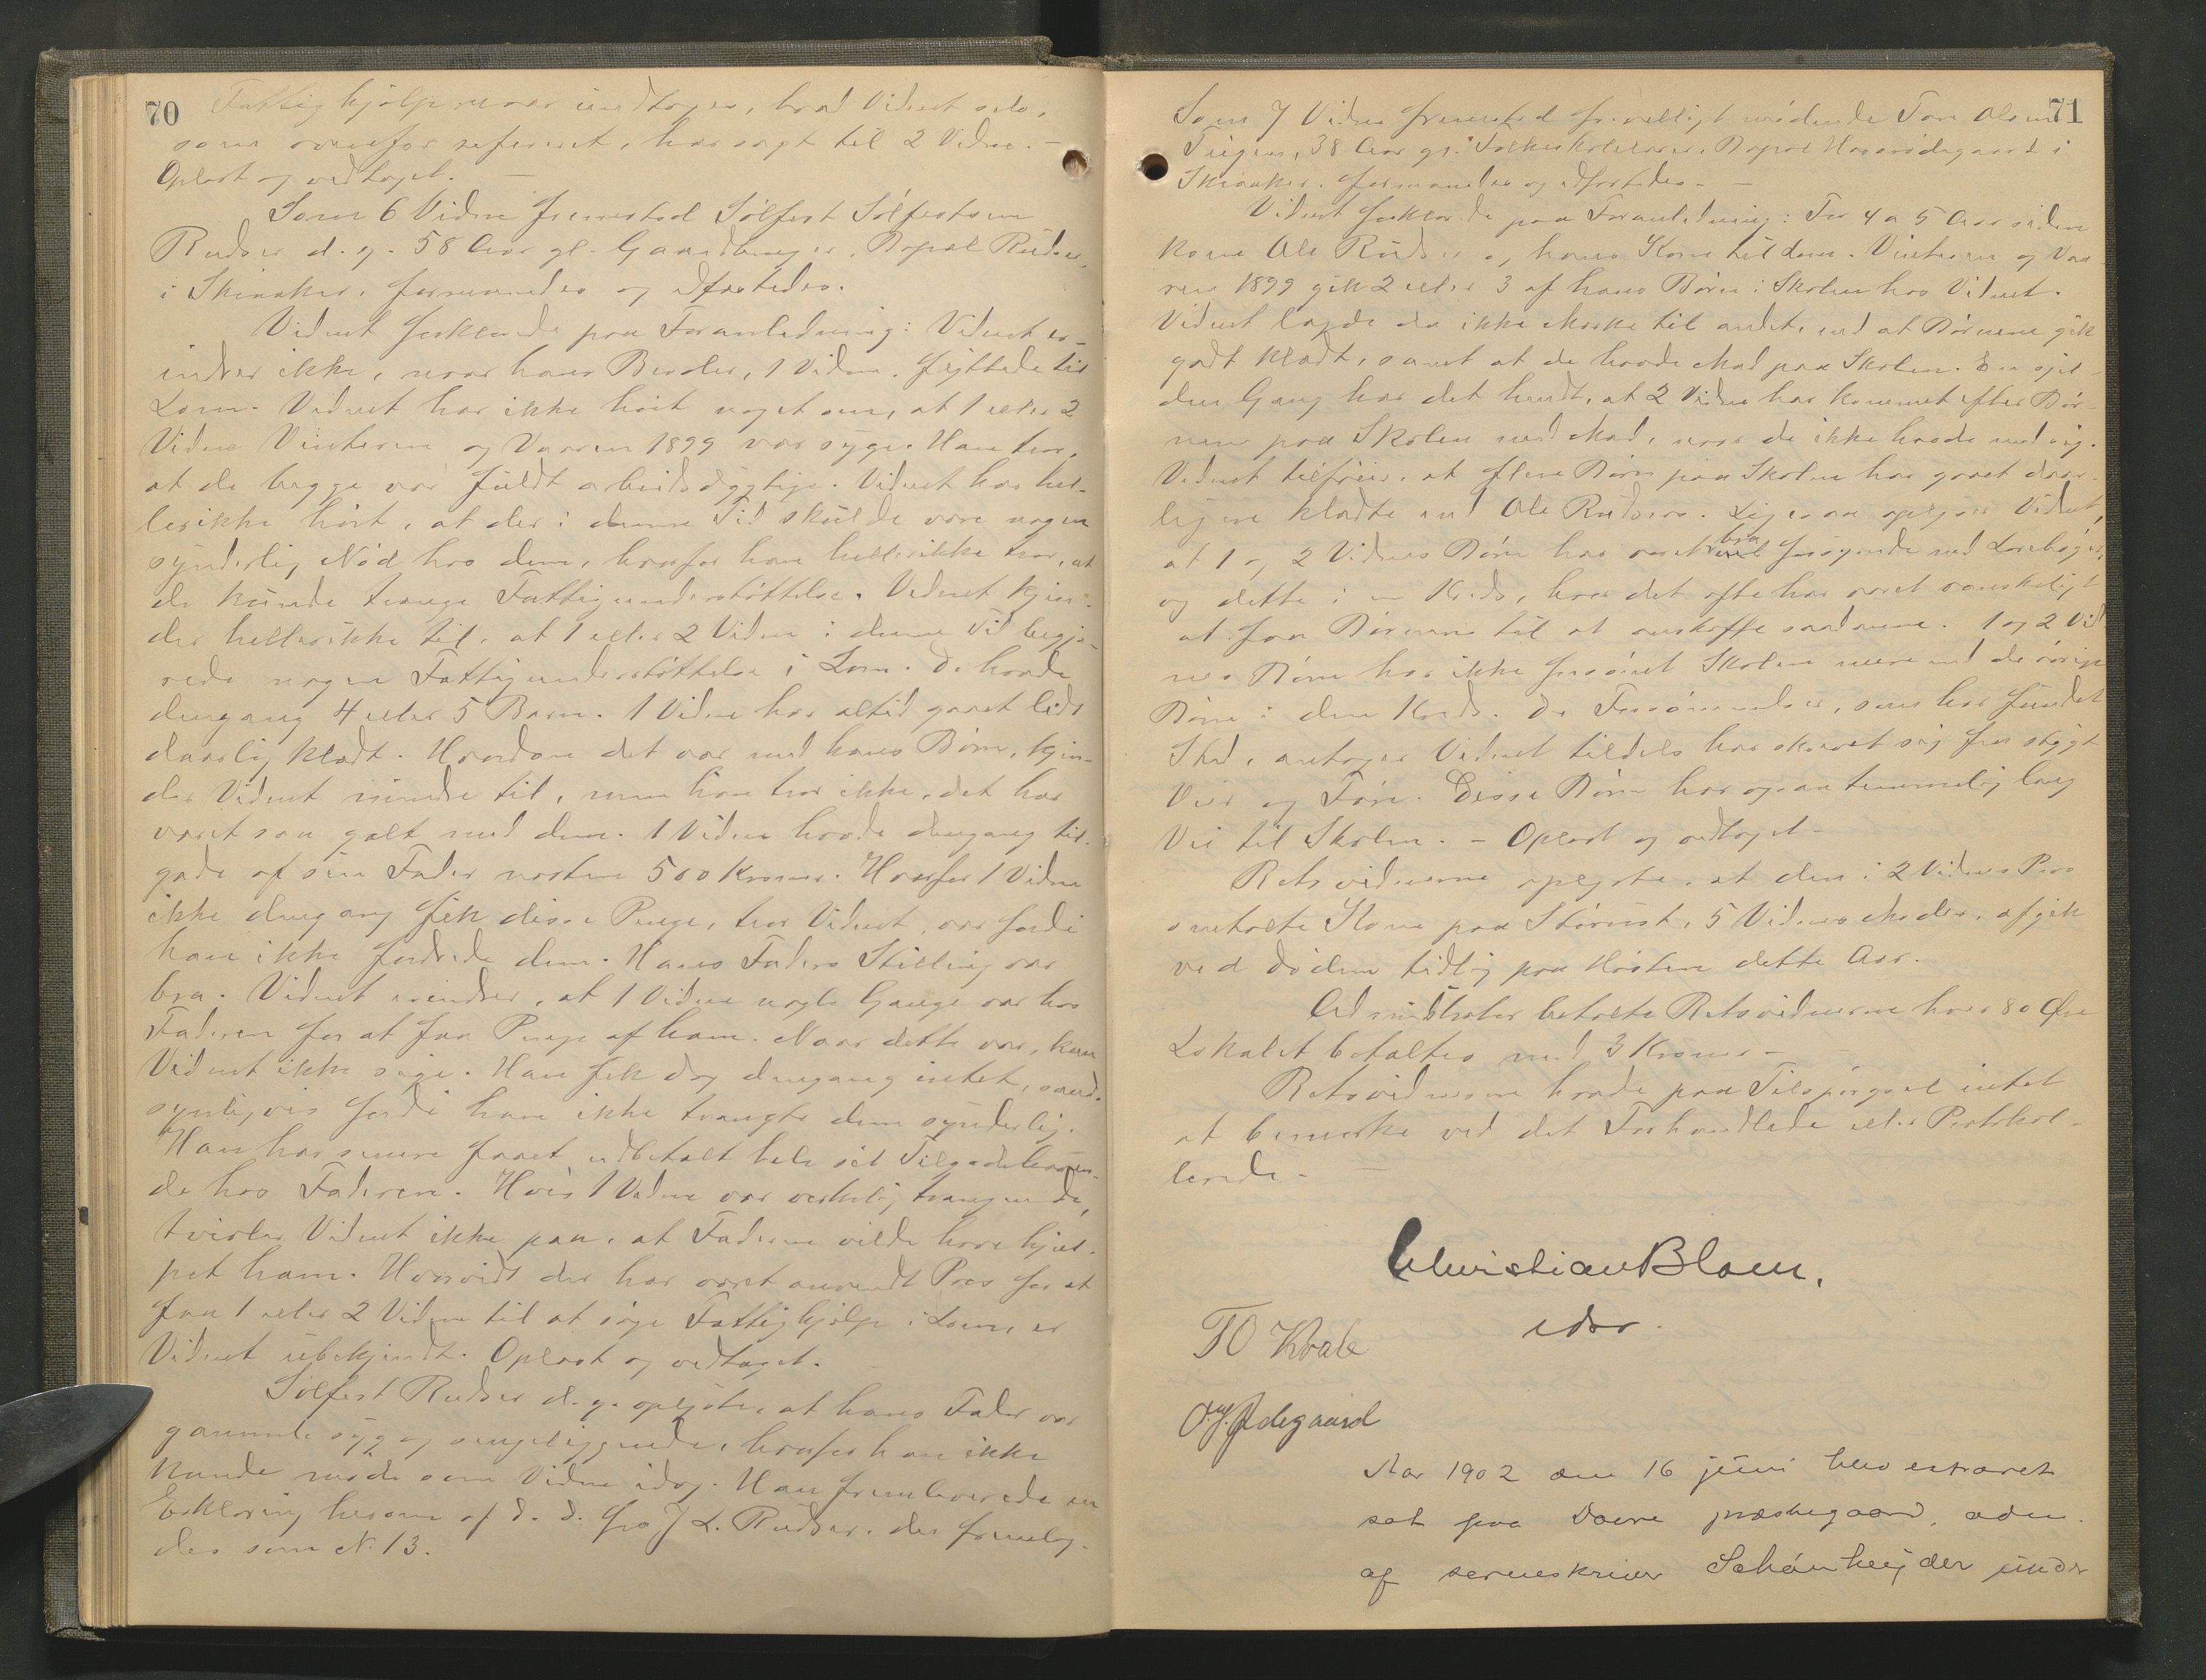 70
Fattighjælp var indtagen, hvad Vidnet selv,
som ovenfor referert, har sagt til 2 Vidne. -
Oplæst og vedtaget. -
Som 6 Vidne fremstod Sølfest Sølfestsen
Rudser d. y. 58 Aar gl. Gaardbruger, Bopæl Rudser
i Skiaaker, formanedes og edfæstedes.
Vidnet forklarede paa Foranledning: Vidnet er-
indrer ikke, naar hans Broder, 1 Vidne, flyttede til
Lom. Vidnet har ikke hørt noget om, at 1 eller 2
Vidne Vinteren og Vaaren 1899 var syge. Han tror,
at de begge var fuldt arbeidsdygtige. Vidnet har hel-
ler ikke hørt, at der i denne Tid skulde være nogen
synderlig Nød hos dem, hvorfor han heller ikke tror, at
de kunde trænge Fattigunderstøttelse. Vidnet kjen-
der heller ikke til, at 1 eller 2 Vidne i denne Tid begjæ-
rede nogen Fattigunderstøttelse i Lom. De havde
dengang 4 eller 5 Barn. 1 Vidne har altid gaaet lidt
daarlig klædt. Hvordan det var med hans Børn, kjen-
der Vidnet mindre til, men han tror ikke, det har
været saa galt med dem. 1 Vidne havde dengang til-
gode af sin Fader næsten 500 Kroner. Hvorfor 1 Vidne
ikke dengang fik disse Penge, tror Vidnet, var fordi
han ikke fordrede dem. Hans Faders Stilling var
bra. Vidnet erindrer, at 1 Vidne nogle Gange var hos
Faderen for at faa Penge af ham. Naar dette var, kan
Vidnet ikke sige. Han fik dog dengang intet, sand-
synligvis fordi han ikke trængte dem synderlig.
Han har senere faaet udbetalt hele sit Tilgodehaven-
de hos Faderen. Hvis 1 Vidne var virkelig trængende,
tvivler Vidnet ikke paa, at Faderen vilde have hjul-
pet ham. Hvorvidt der har været anvendt Pres for at
faa 1 eller 2 Vidne til at søge Fattighjælp i Lom, er
Vidnet ubekjendt. Oplæst og vedtaget.
Sølfest Rudser d. y. oplyste, at hans Fader var
gammel, syg og sengeliggende, hvorfor han ikke
kunde møde som Vidne idag. Han fremleverede en
Erklæring herom af d. d. fra J. L. Rudser, der fremlag-
des som N. 13.
71
Som 7 Vidne fremstod frivilligt mødende Tor Olsen
38 Aar gl. Folkeskolelærer, Bopæl i
Skiaaker, formanedes og edfæstedes. -
Vidnet forklarede paa Foranledning: For 4 a 5 Aar siden
kom Ole Rudser og hans Kone til dem. Vinteren og Vaa-
ren 1899 gik 2 eller 3 af hans Børn i Skolen hos Vidnet.
Vidnet lagde da ikke Mærke til andet, end at Børnene gik
godt klædt, samt at de havde Mad paa Skolen. En sjel-
den Gang har det hendt, at 2 Vidne har kommet efter Bør-
nene paa Skolen med Mad, naar de ikke havde med sig.
Vidnet tilføier, at flere Børn paa Skolen har gaaet daar-
ligere klædte end Ole Rudsers. Ligesaa oplyser Vidnet,
at 1 og 2 Vidnes Børn har været bra forsynede med Lærebøger,
og dette i en Kreds, hvor det ofte har været vanskeligt
at faa Børnene til at anskaffe saadanne. 1 og 2 Vid-
nes Børn har ikke forsømt Skolen mere end de øvrige
Børn i den Kreds. De Forsømmelser, som har fundet
Sted, antager Vidnet tildels har skrevet sig fra stygt
Veir og Føre. Disse Børn har ogsaa temmelig lang
Vei til Skolen. - Oplæst og vedtaget -
Retsvidnerne oplyste, at den i 2 Vidnes Prov
omtalte Kone paa Størust, 5 Vidnes Moder, afgik
ved Døden tidlig paa Høsten dette Aar.
Administrator betalte Retsvidnerne hver 80 Øre
Lokalet betaltes med 3 Kroner -
Retsvidnerne havde paa Tilspørgsel intet
at bemerke ved det Forhandlede eller Protokol-
lerede. -
Christian Blom.
edsv.
TO Kvale
O. Ødegaard
Aar 1902 den 16 juni blev extraret
sat paa Dovre præstegaard, adm.
af sorenskriver Schönheyder under